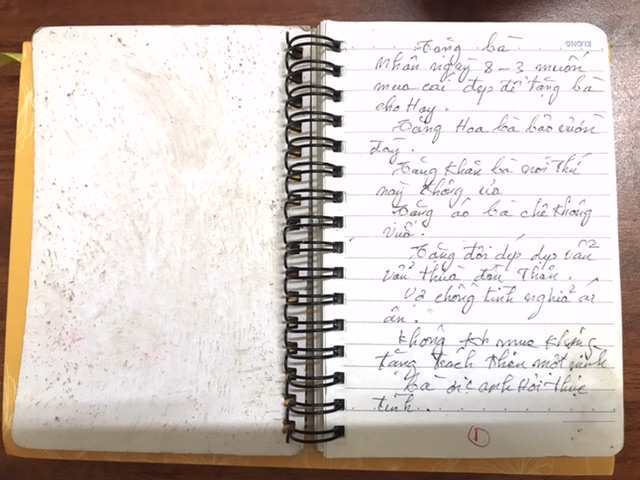 KLONG
Tặng bà
Nhân ngày 8-3 muốn
mua cái đẹp để tặng bà
cho Hay.
Tặng Hoa bà bảo vườn
đây.
Tặng khăn bà nói thứ
này không ưa
Tặng áo bà chê không
vừa.
Tặng đôi dép dép vẫn
vẫn thừa đôi Thân.
Vợ chồng tình nghĩa ái
ân.
Không mua không
tặng trách thân một mình
bà ơi anh Hỏi thực
tình.
1